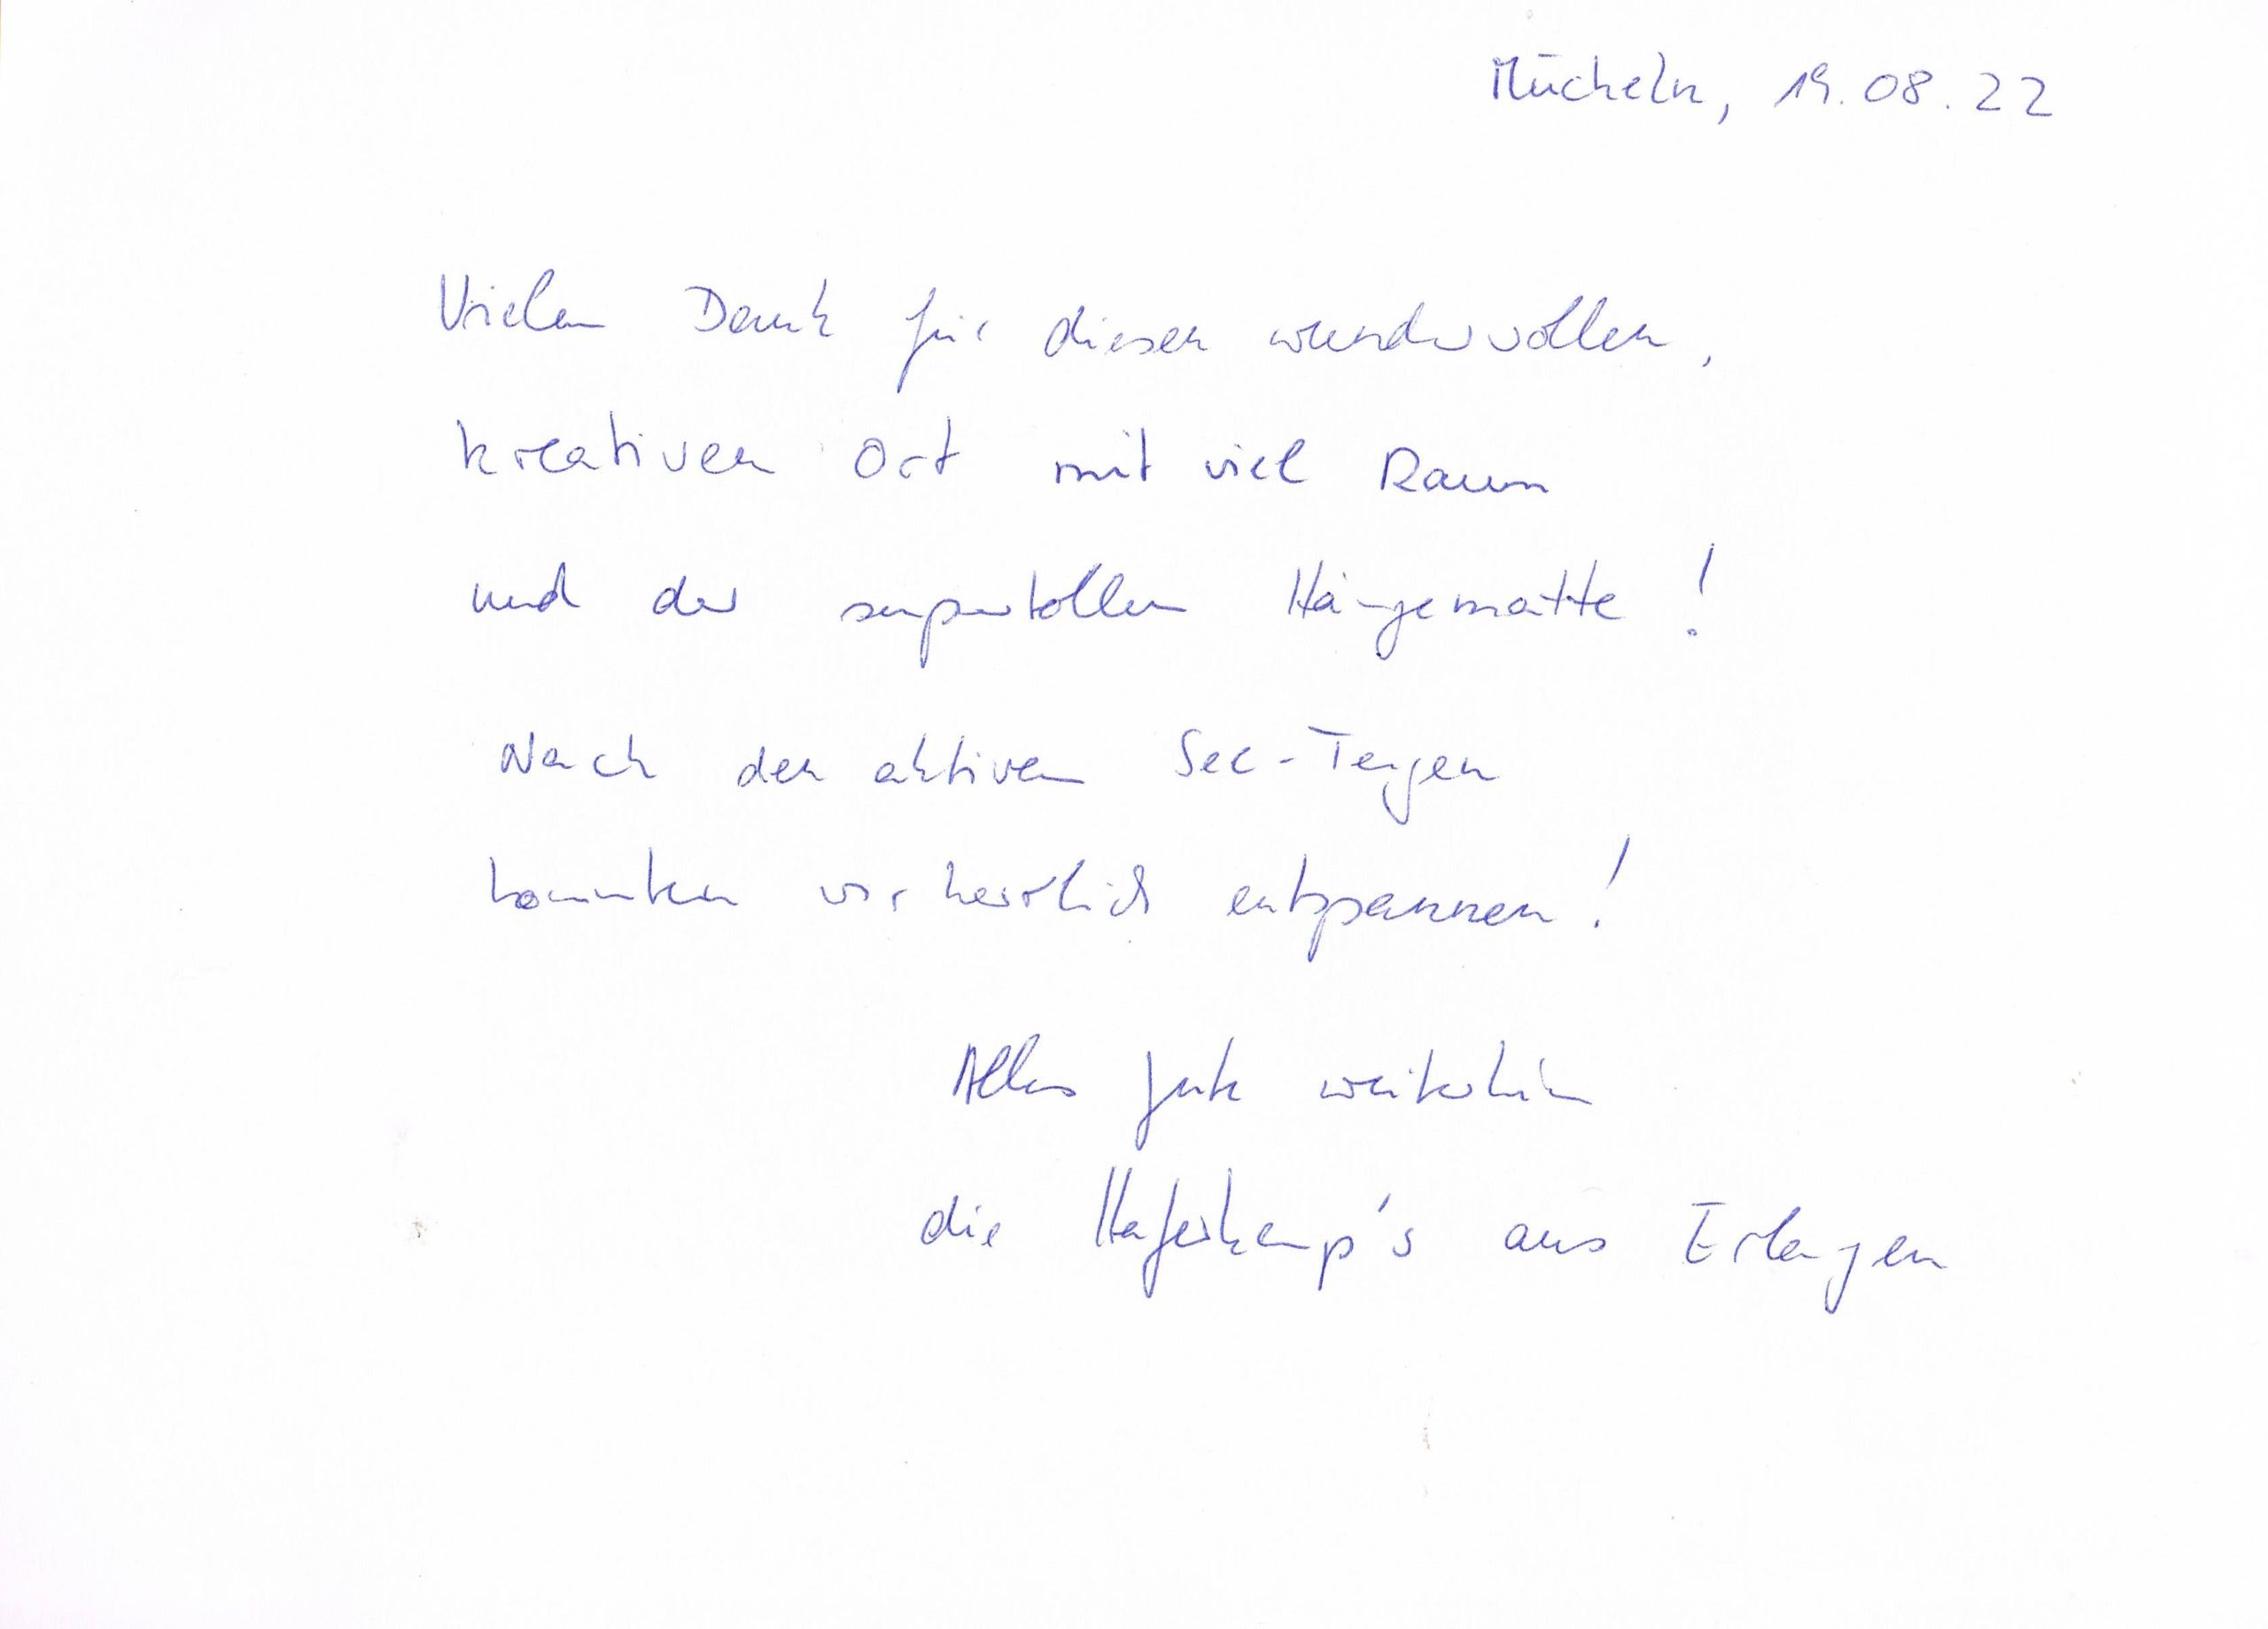 Mücheln, 19.08.22
Vielen Dank für diesen wundervollen,
kreativen Ort mit viel Raum
und der supertollen Hängematte!
Nach den aktiven See-Tagen
konnten wir herrlich entspannen!
Alles gute weiterhin
die Haferkamp's aus Erlangen